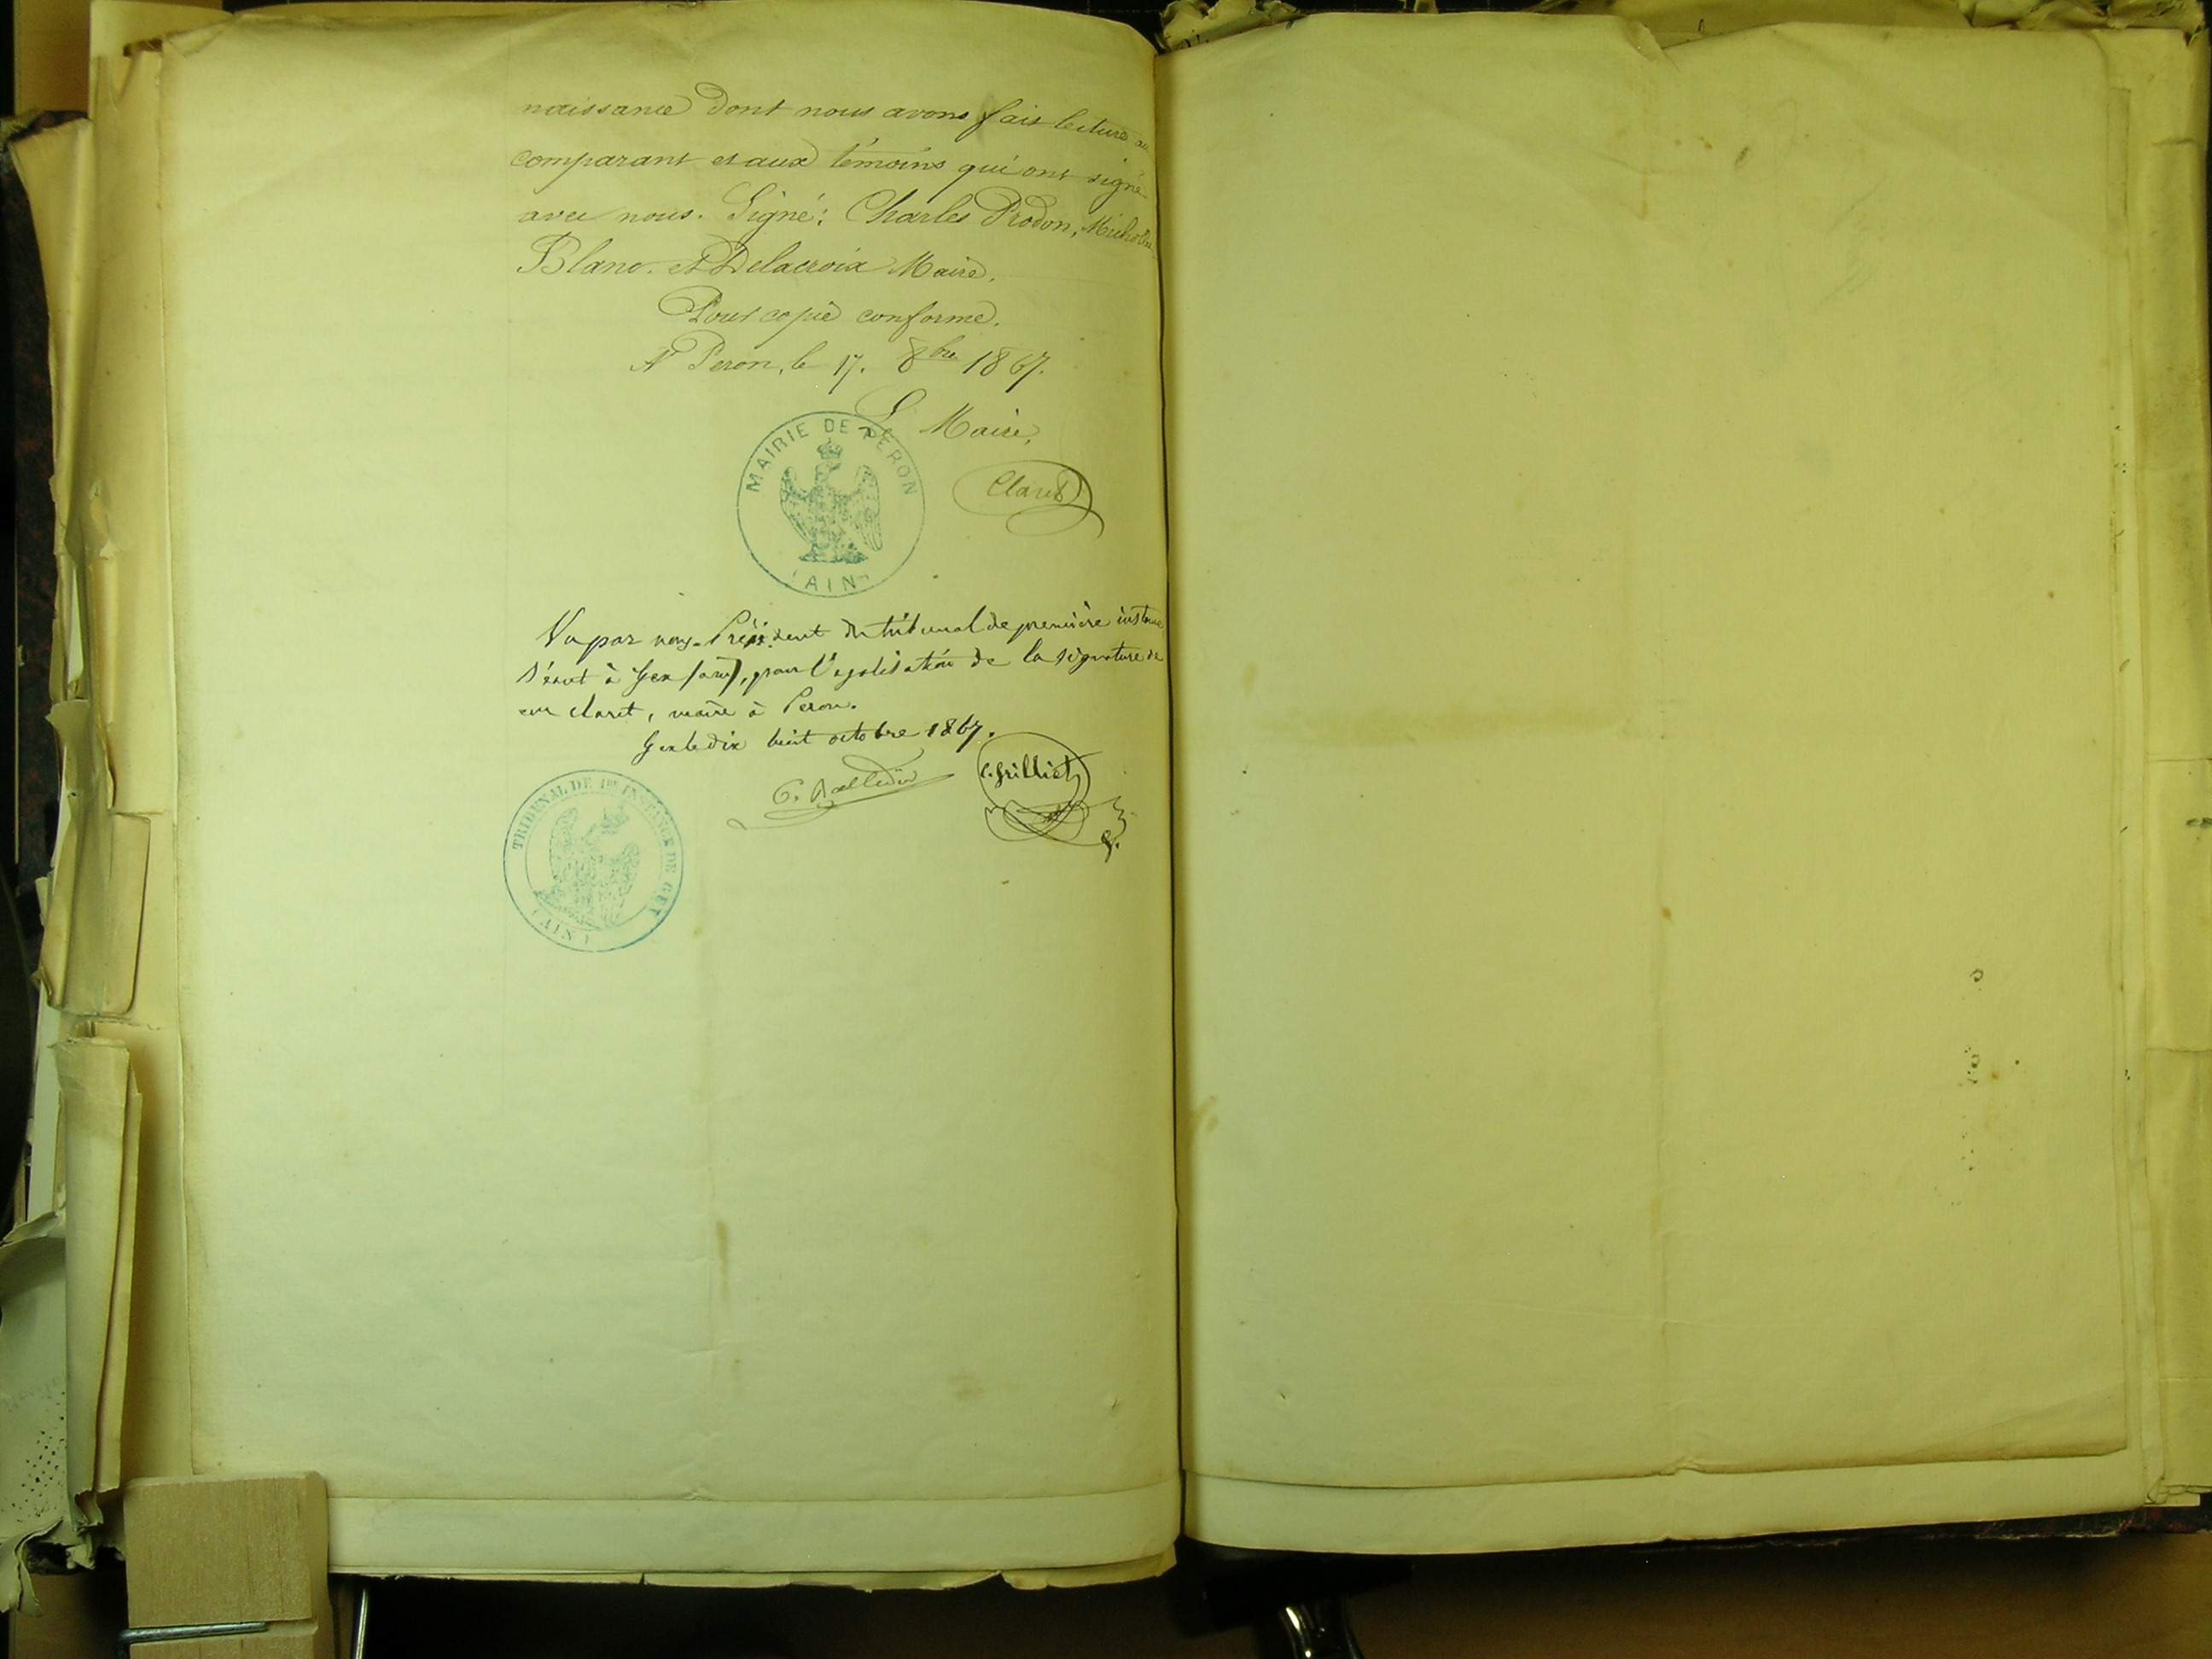 naissance dont nous avons fait lecture au
comparant et aux témoins qui ont signé
avec nous. Signé: Charles Prodon,
Blanc. et Delacroix Maire.
Pour copie conforme.
A Peron, le 17. 8bre 1867.
Le Maire,
MAIRIE DE PERON
(AIN)
Claret
Vu par nous Président du tribunal de première instance
séant à Gex (ain), pour légalisation de la signature de
claret, maire à Peron.
Gex le dix huit octobre 1867.
TRIBUNAL DE 1re INSTANCE DE GEX
(AIN)